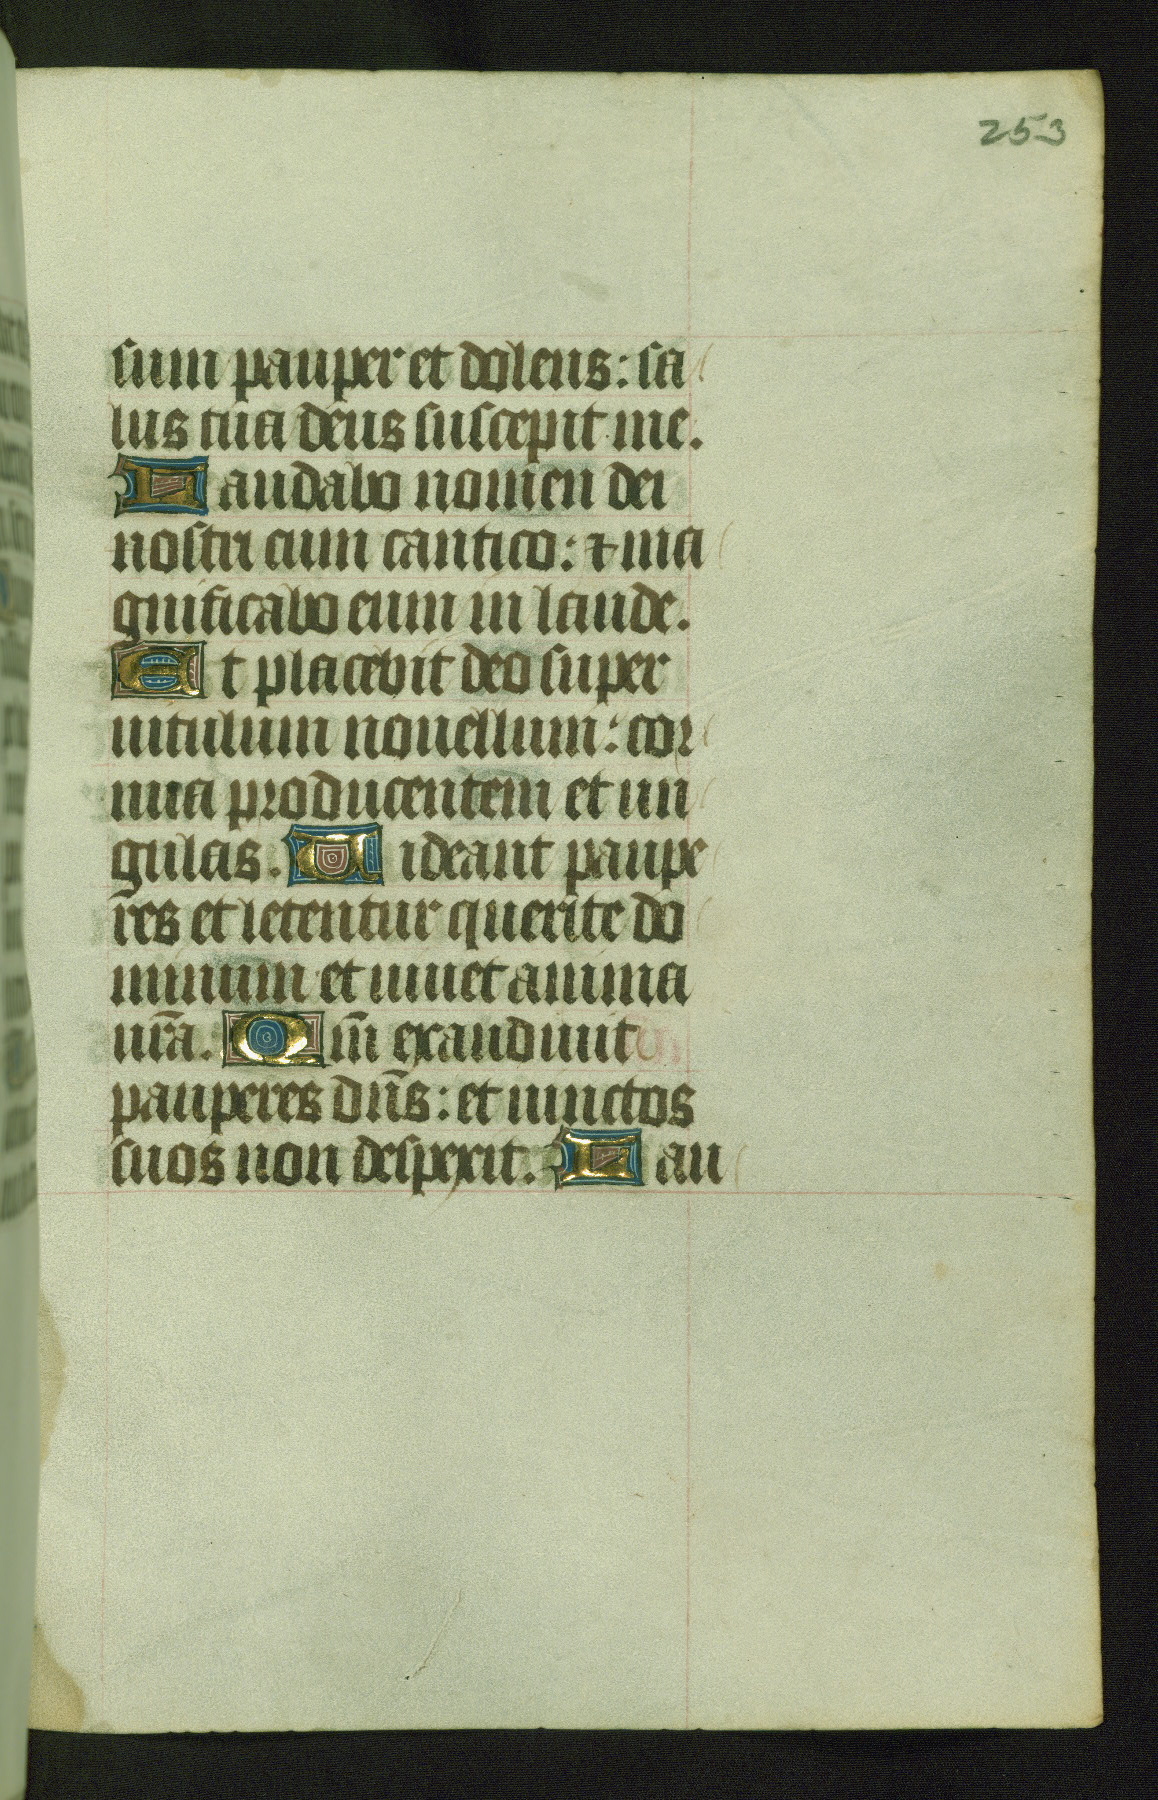 253
sum pauper et dolens: sa
lus tua deus suscepit me.
Laudabo nomen dei
nostri cum cantico: ⁊ ma
gnificabo eum in laude.
Et placebit deo super
uitulum nouellum: cor
nua producentem et un
gulas. Uideant paupe
res et letentur querite do
minum et uiuet anima
ur̄a. Qm̄ exaudiuit
pauperes dn̄s: et uinctos
suos non despexit. Lau